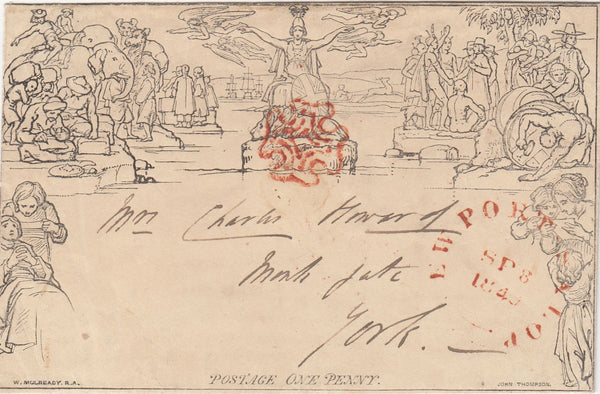 Mrs Charles Howard
Monk gate
York.
PORT
SP 8
184
POSTAGE ONE PENNY.
W. MULREADY, R.A.
JOHN THOMPSON.